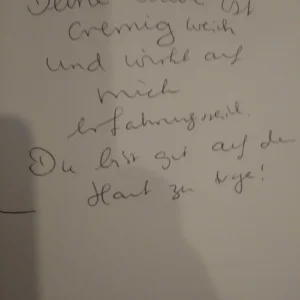 Deine Haut ist
cremig weich
und wirkt auf
mich
erfahrungsreich.
Du bist gut auf der
Haut zu tragen!